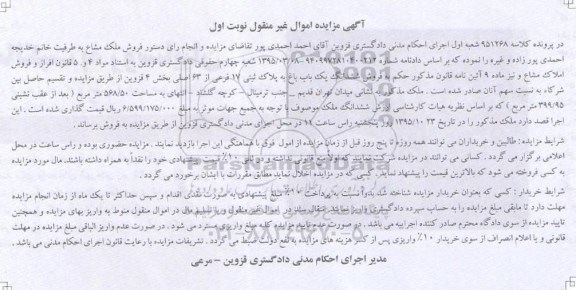 آگهی مزایده اموال غیر منقول نوبت اول
در پرونده کلاسه ۹۵۱۲۶۸ شعبه اول اجرای احکام مدنی دادگستری قزوین آقای احمد احمدی پور تقاضای مزایده و انجام رای دستور فروش ملک مشاع به طرفیت خانم خدیجه
احمدی پور زاده و غیره را نموده که بر اساس دادنامه شماره ۹۴۰۹۹۷۲۸۱۰۴۰۰۲۱۳ - ۱۳۹۵/۰۳/۰۸ شعبه چهارم حقوقی دادگستری قزوین به استناد مواد ۴ و ۵ قانون افراز و فروش
املاک مشاع و نیز ماده ۹ آئین نامه قانون مذکور حکم به فروش ششدانگ یک باب باغ به پلاک ثبتی ۱۷ فرعی از ۶۳ اصلی بخش ۴ قزوین از طریق مزایده و تقسیم حاصل بین
شرکاء به نسبت سهم آنان صادر شده است . ملک مذکور به نشانی میدان تهران قدیم - جنب ترمینال - کوچه گلشاد - انتهای به مساحت ۵۶۸/۵۰ متر مربع ( بعد از عقب نشینی
۳۹۹/۹۵ متر مربع ) که بر اساس نظریه هیات کارشناسی ارزش ششدانگ ملک موصوف با توجه به جمیع جهات موثر به مبلغ ۶/۵۹۹/۱۷۵/۰۰۰ ریال قیمت گذاری شده است . این
اجرا قصد دارد ملک مذکور را در تاریخ ۲۳ /۱۰ /۱۳۹۵ روز پنجشنبه راس ساعت ۱۹ در محل اجرای مدنی دادگستری قزوین از طریق مزایده به فروش برساند .
شرایط مزایده : طالبین و خریداران می توانند همه روزه تا پنج روز قبل از زمان مزایده از اموال فوق با هماهنگی این اجرا بازدید نمایند . مزایده حضوری بوده و راس ساعت در محل
اعلامی برگزار می گردد . کسانی می توانند در مزایده شرکت نمایند که موانع قانونی نداشته و حداقل ۱۰٪ مبلغ پیشنهادی خود را نقداً به همراه داشته باشند. مال مورد مزایده
به کسی فروخته می شود که بالاترین قیمت را پیشنهاد نماید. کسی که در مزایده اخلال نماید مطابق مقررات با ایشان برخورد می گردد .
شرایط خریدار : کسی که بعنوان خریدار مزایده شناخته شد بدواً نسبت به پرداخت ۱۰٪ مبلغ پیشنهادی به صورت نقدی اقدام و سپس حداکثر تا یک ماه از زمان انجام مزایده
مهلت دارد تا مابقی مبلغ مزایده را به حساب سپرده دادگستری واریز نماید. انتقال سند در اموال غیر منقول و تسلیم مال در اموال منقول منوط به واریز بهای مزایده و همچنین
تایید مزایده از سوی دادگاه محترم صادر کننده اجرائیه می باشد . در صورت عدم تایید مزایده کلیه مبالغ واریزی مسترد می شود . در صورت عدم واریز الباقی مبلغ مزایده در مهلت
قانونی و یا اعلام انصراف از سوی خریدار ۱۰٪ واریزی پس از کسر هزینه های مزایده به نفع دولت ضبط می گردد . تشریفات مزایده با رعایت قانون اجرای احکام مدنی می باشد .
مدیر اجرای احکام مدنی دادگستری قزوین - مرعی